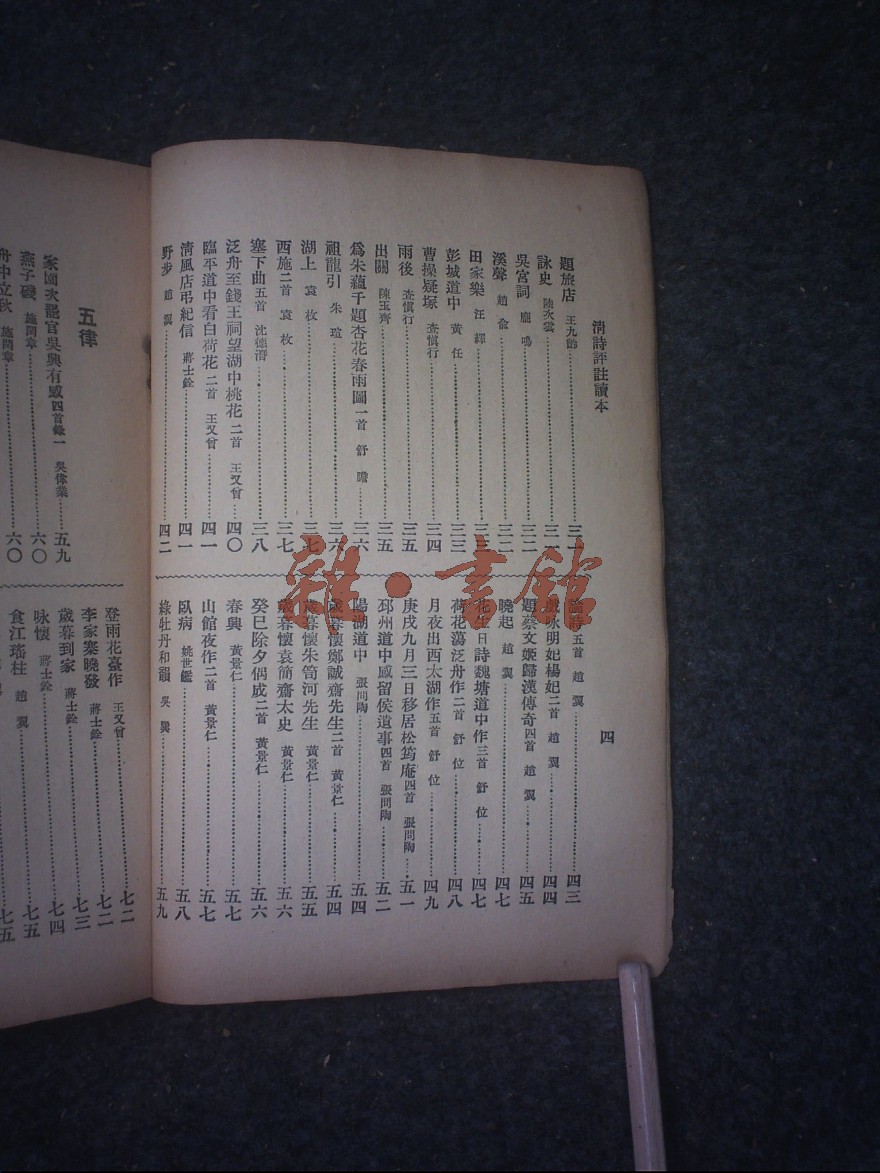 清詩評註讀本
四
題旅店 王九齡 三一
詠史 陸次雲 三一
吳宮詞 龐鳴 三二
溪聲 趙俞 三二
田家樂 汪繹 三三
彭城道中 黃任 三三
曹操疑塚 查慎行 三四
雨後 查慎行 三五
出關 陳玉齊 三五
爲朱蘊千題杏花春雨圖一首 舒瞻 三六
祖龍引 朱瑄 三六
湖上 袁枚 三七
西施二首 袁枚 三七
塞下曲五首 沈德潛 三八
泛舟至錢王祠望湖中桃花二首 王又曾 四〇
臨平道中看白荷花二首 王又曾 四一
清風店弔紀信 蔣士銓 四一
野步 趙翼 四二
論詩五首 趙翼 四三
戲咏明妃楊妃二首 趙翼 四四
題蔡文姬歸漢傳奇四首 趙翼 四五
曉起 趙翼 四七
花生日詩魏塘道中作三首 舒位 四七
荷花蕩泛舟作二首 舒位 四八
月夜出西太湖作五首 舒位 四九
庚戌九月三日移居松筠庵四首 張問陶 五一
邳州道中感留侯遺事四首 張問陶 五二
陽湖道中 張問陶 五四
歲暮懷鄭誠齋先生二首 黃景仁 五四
歲暮懷朱笥河先生 黃景仁 五五
歲暮懷袁簡齋太史 黃景仁 五六
癸巳除夕偶成二首 黃景仁 五六
春興 黃景仁 五七
山館夜作二首 黃景仁 五七
臥病 姚世鑑 五八
綠牡丹和韻 吳巽 五九
五律
吳興有感四首錄一 吳偉業 五九
燕子磯 施閏章 六〇
舟中立秋 施閏章 六〇
登雨花臺作 王又曾 七二
李家寨曉發 蔣士銓 七二
歲暮到家 蔣士銓 七三
咏懷 蔣士銓 七四
食江瑤柱 趙翼 七五
七五
雜·書館